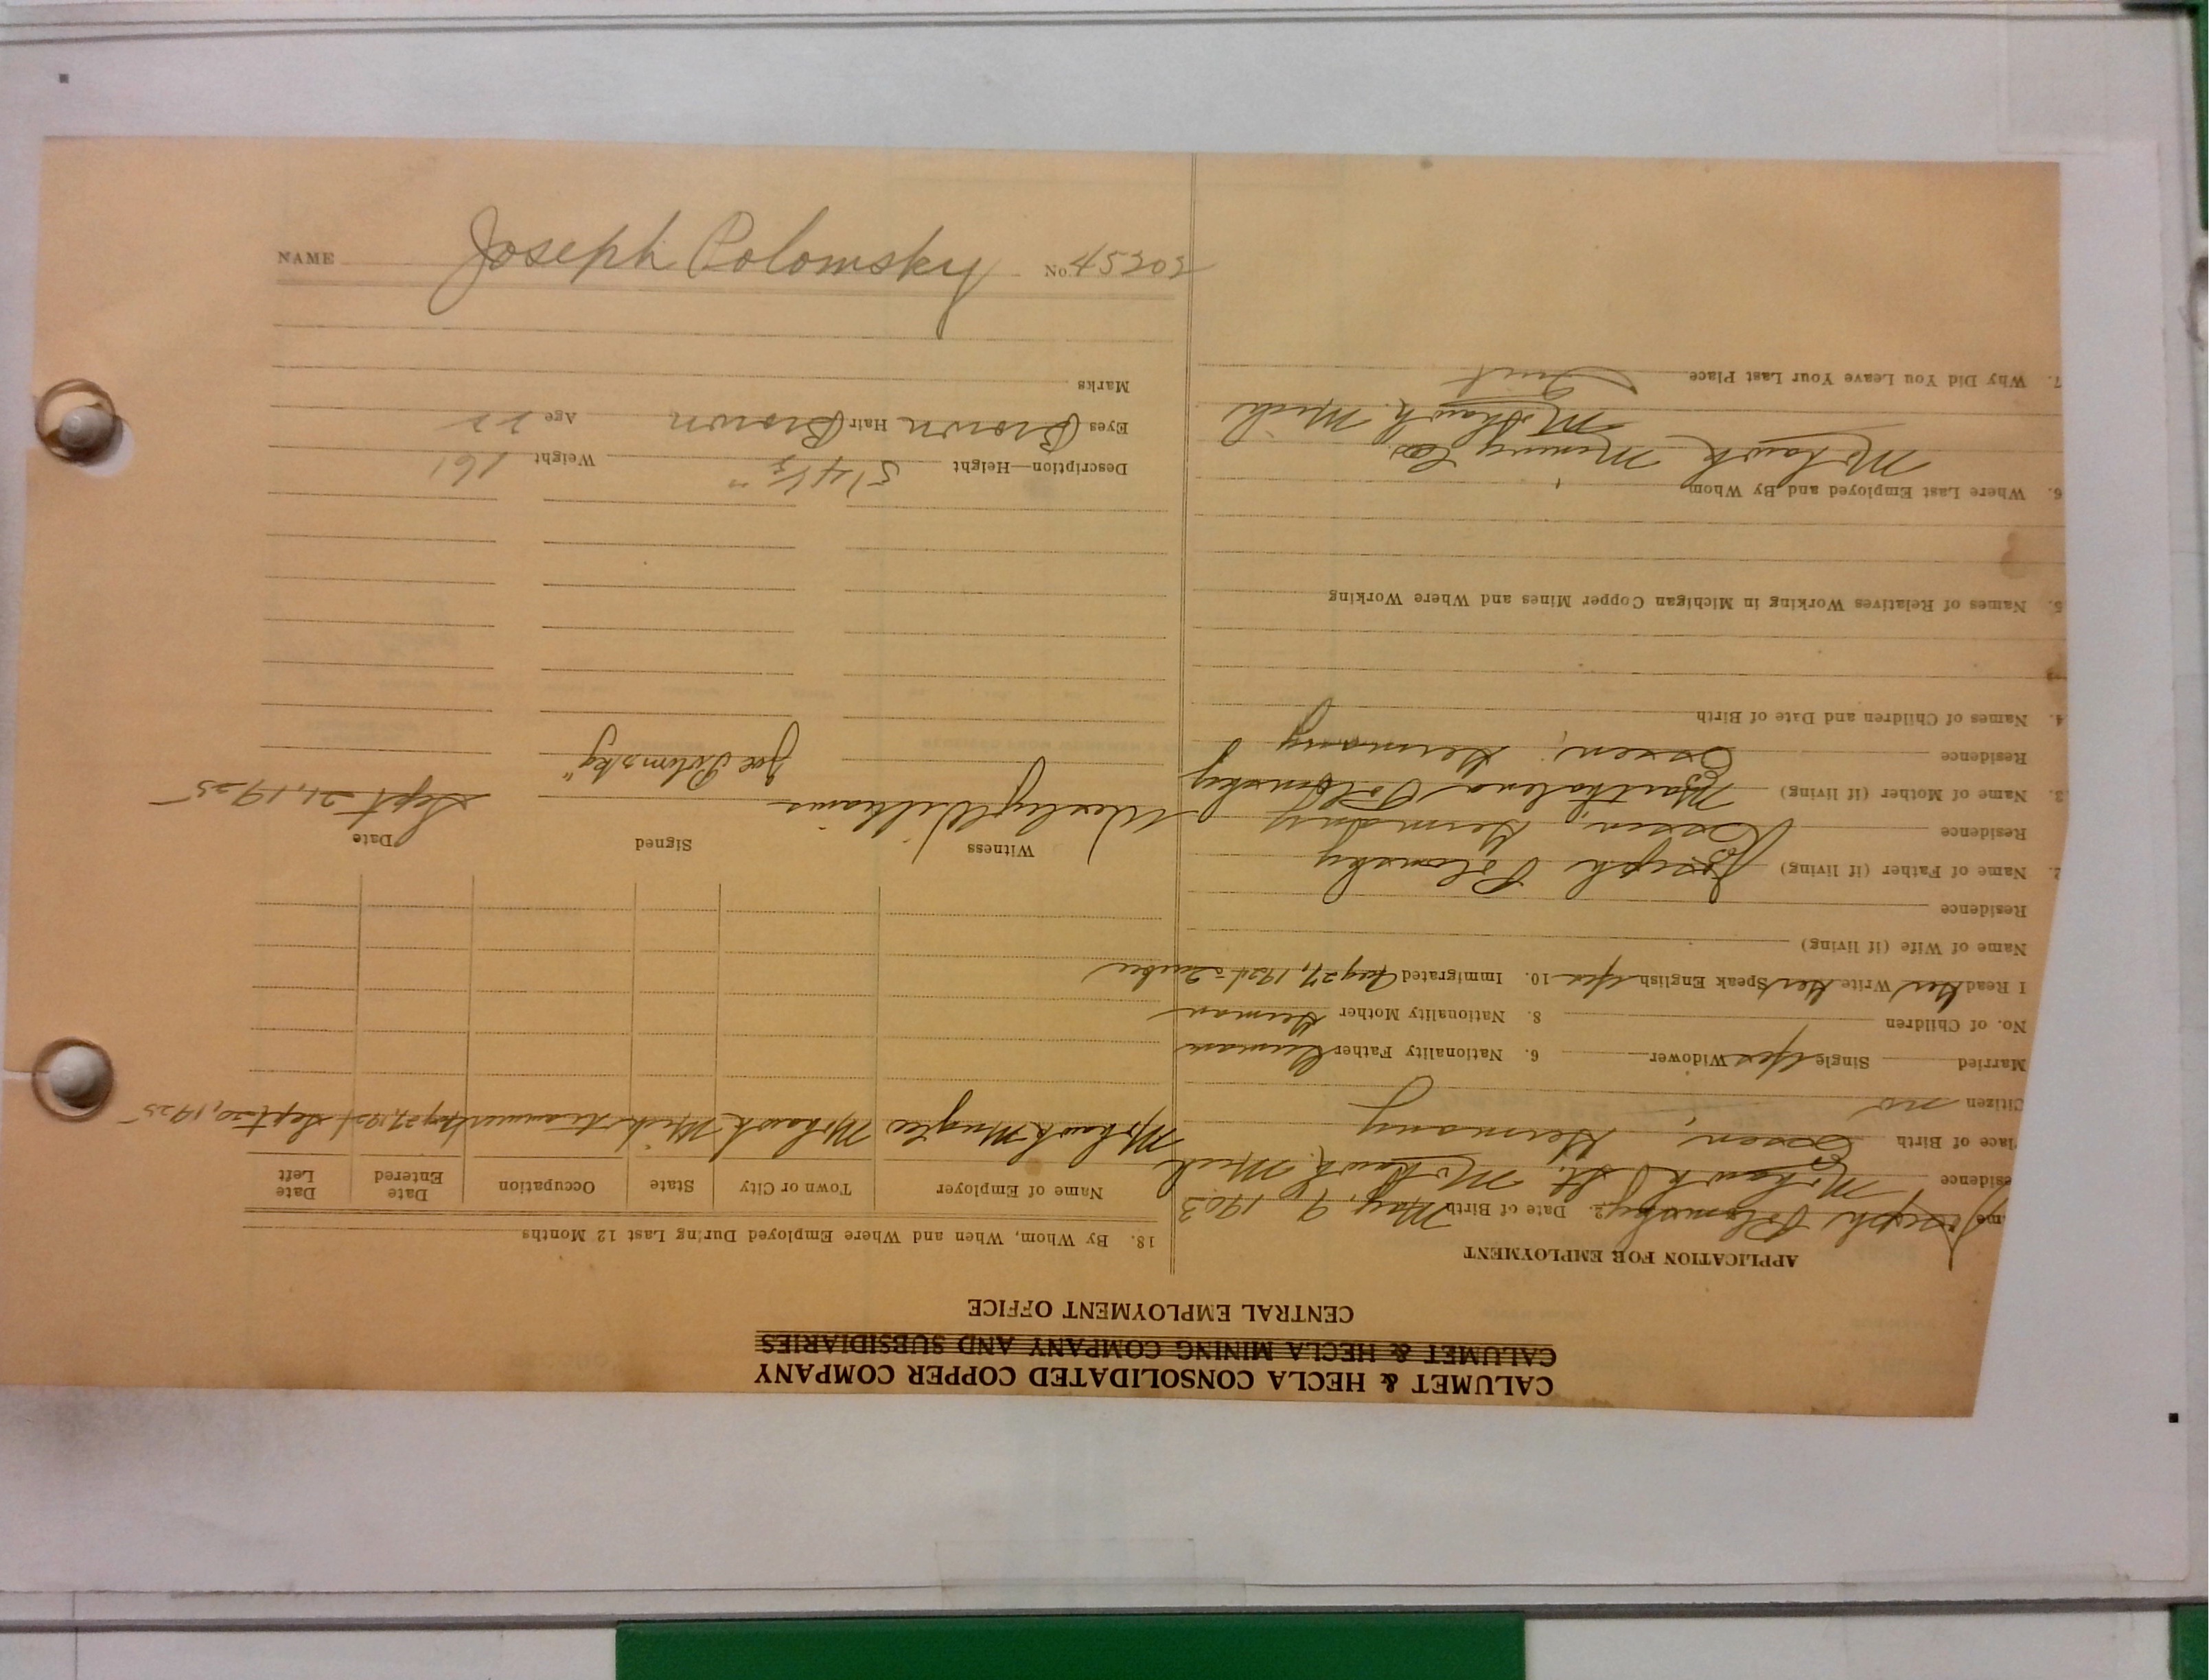 NAME Joseph Polomsky No. 45202
CALUMET & HECLA CONSOLIDATED COPPER COMPANY
CALUMET & HECLA MINING COMPANY AND SUBSIDIARIES
CENTRAL EMPLOYMENT OFFICE
APPLICATION FOR EMPLOYMENT
me Joseph Polomsky 2. Date of Birth May 9, 1903
esidence Mohawk St. Mohawk, Mich
lace of Birth Essen, Germany
Citizen no
Married Single yes Widower 6. Nationality Father German
No. of Children 8. Nationality Mother German
I Read yes Write yes Speak English yes 10. Immigrated 27, 1924
Name of Wife (if living)
Residence
2. Name of Father (if living) Joseph Polomsky
Residence Essen, Germany
3. Name of Mother (if living) Polomsky
Residence Essen, Germany
4. Names of Children and Date of Birth
5. Names of Relatives Working in Michigan Copper Mines and Where Working
6. Where Last Employed and By Whom
Mohawk Mining Co.
Mohawk, Mich
7. Why Did You Leave Your Last Place Quit
18. By Whom, When and Where Employed During Last 12 Months
Name of Employer Town or City State Occupation Date Entered Date Left
Mohawk Mng Co Mohawk Mich trammer 27, 1924 Sept 20, 1925
Witness Signed Date
Wesley Williams Sept 21, 1925
"Joe Polomsky"
Description—Height 5' 4½" Weight 161
Eyes Brown Hair Brown Age 22
Marks